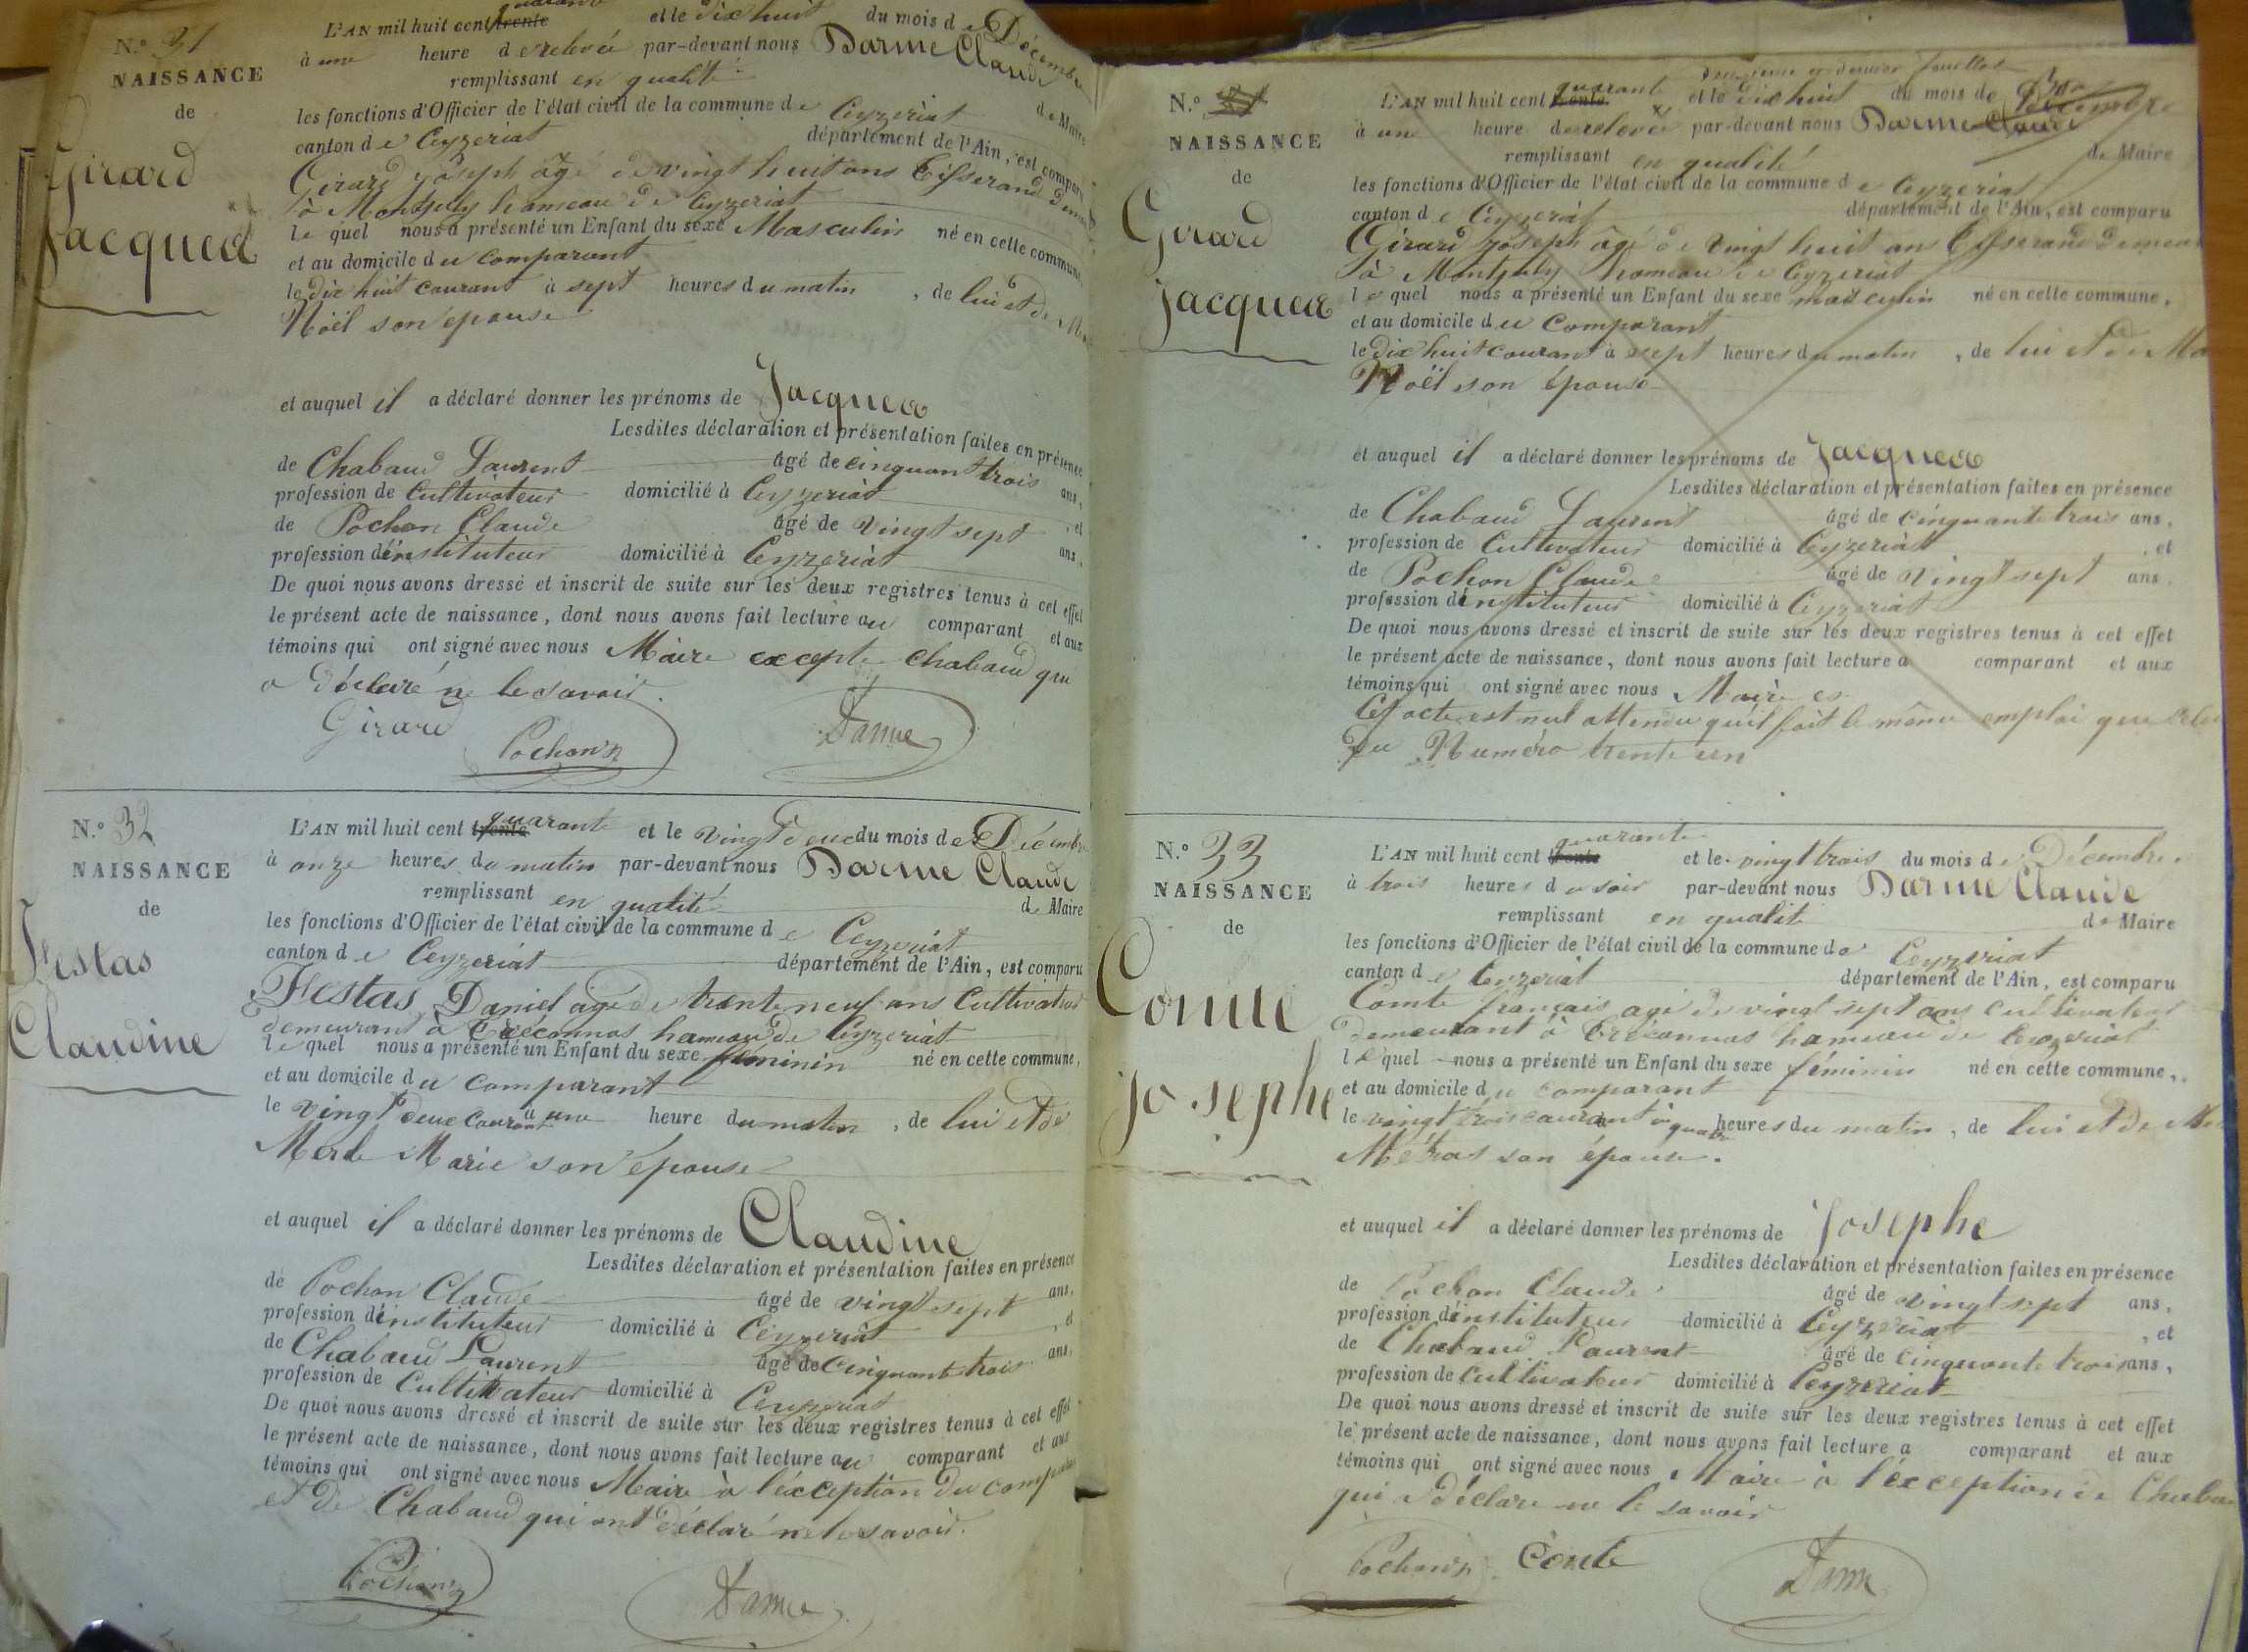 N.° 31
NAISSANCE
de
Girard
Jacques
L'AN mil huit cent trente quarante et le dix huit du mois de Décembre
à une heure de relevée par-devant nous Darme Claude
remplissant en qualité de Maire
les fonctions d'Officier de l'état civil de la commune de Ceyzeriat
canton de Ceyzeriat département de l'Ain, est comparu
Girard Joseph âgé de vingt huit ans Tisserand
à Montjuly hameau de Ceyzeriat
le quel nous a présenté un Enfant du sexe Masculin né en cette commune
et au domicile du comparant
le dix huit courant à sept heures du matin, de lui et de
Noël son épouse
et auquel il a déclaré donner les prénoms de Jacques
Lesdites déclaration et présentation faites en présence
de Chabaud Laurent âgé de cinquant trois ans,
profession de Cultivateur domicilié à Ceyzeriat, et
de Pochon Claude âgé de vingt sept ans,
profession d'instituteur domicilié à Ceyzeriat
De quoi nous avons dressé et inscrit de suite sur les deux registres tenus à cet effet
le présent acte de naissance, dont nous avons fait lecture au comparant et aux
témoins qui ont signé avec nous Maire excepté Chabaud qui
a déclaré ne le savoir.
Girard
Pochon
Darme
N.° 32
NAISSANCE
de
Festas
Claudine
L'AN mil huit cent trente quarante et le vingt deux du mois de Décembre
à onze heures du matin par-devant nous Darme Claude
remplissant en qualité de Maire
les fonctions d'Officier de l'état civil de la commune de Ceyzeriat
canton de Ceyzeriat département de l'Ain, est comparu
Festas Daniel âgé de trente neuf ans Cultivateur
demeurant à Tréconnas hameau de Ceyzeriat
le quel nous a présenté un Enfant du sexe féminin né en cette commune,
et au domicile du comparant
le vingt deux courant à une heure du matin, de lui et de
Merle Marie son épouse
et auquel il a déclaré donner les prénoms de Claudine
Lesdites déclaration et présentation faites en présence
de Pochon Claude âgé de vingt sept ans,
profession d'instituteur domicilié à Ceyzeriat, et
de Chabaud Laurent âgé de cinquante trois ans,
profession de Cultivateur domicilié à Ceyzeriat
De quoi nous avons dressé et inscrit de suite sur les deux registres tenus à cet effet
le présent acte de naissance, dont nous avons fait lecture au comparant et aux
témoins qui ont signé avec nous Maire à l'éxception du comparant
et de Chabaud qui ont déclaré ne le savoir.
Pochon
Darme
et dernier feuillet
N.°
NAISSANCE
de
Girard
Jacques
L'AN mil huit cent trente quarante et le dix huit du mois de Décembre
à une heure de relevée par-devant nous Darme Claude
remplissant en qualité de Maire
les fonctions d'Officier de l'état civil de la commune de Ceyzeriat
canton de Ceyzeriat département de l'Ain, est comparu
Girard Joseph âgé de vingt huit ans Tisserand
à Montjuly hameau de Ceyzeriat
le quel nous a présenté un Enfant du sexe masculin né en cette commune,
et au domicile du comparant
le dix huit courant à sept heures du matin, de lui et de
Noël son épouse
et auquel il a déclaré donner les prénoms de Jacques
Lesdites déclaration et présentation faites en présence
de Chabaud Laurent âgé de cinquante trois ans,
profession de Cultivateur domicilié à Ceyzeriat, et
de Pochon Claude âgé de vingt sept ans.
profession d'instituteur domicilié à Ceyzeriat
De quoi nous avons dressé et inscrit de suite sur les deux registres tenus à cet effet
le présent acte de naissance, dont nous avons fait lecture a comparant et aux
témoins qui ont signé avec nous Maire
Cet acte est nul attendu qu'il fait le même emploi que celui
du Numéro trente un
N.° 33
NAISSANCE
de
Comte
Josephe
L'AN mil huit cent trente quarante et le vingt trois du mois de Décembre
à trois heures du soir par-devant nous Darme Claude
remplissant en qualité de Maire
les fonctions d'Officier de l'état civil de la commune de Ceyzeriat
canton de Ceyzeriat département de l'Ain, est comparu
Comte français agé de vingt sept ans cultivateur
demeurant à Tréconnas hameau de Ceyzeriat
le quel nous a présenté un Enfant du sexe féminin né en cette commune,
et au domicile du comparant
le vingt trois courant à quatre heures du matin, de lui et de
Métras son épouse.
et auquel il a déclaré donner les prénoms de Josephe
Lesdites déclaration et présentation faites en présence
de Pochon Claude âgé de vingt sept ans,
profession d'instituteur domicilié à Ceyzeriat, et
de Chabaud Laurent âgé de cinquante trois ans,
profession de Cultivateur domicilié à Ceyzeriat
De quoi nous avons dressé et inscrit de suite sur les deux registres tenus à cet effet
le présent acte de naissance, dont nous avons fait lecture a comparant et aux
témoins qui ont signé avec nous Maire à l'éxception de Chabaud
qui a déclaré ne le savoir
Pochon
Conte
Darme